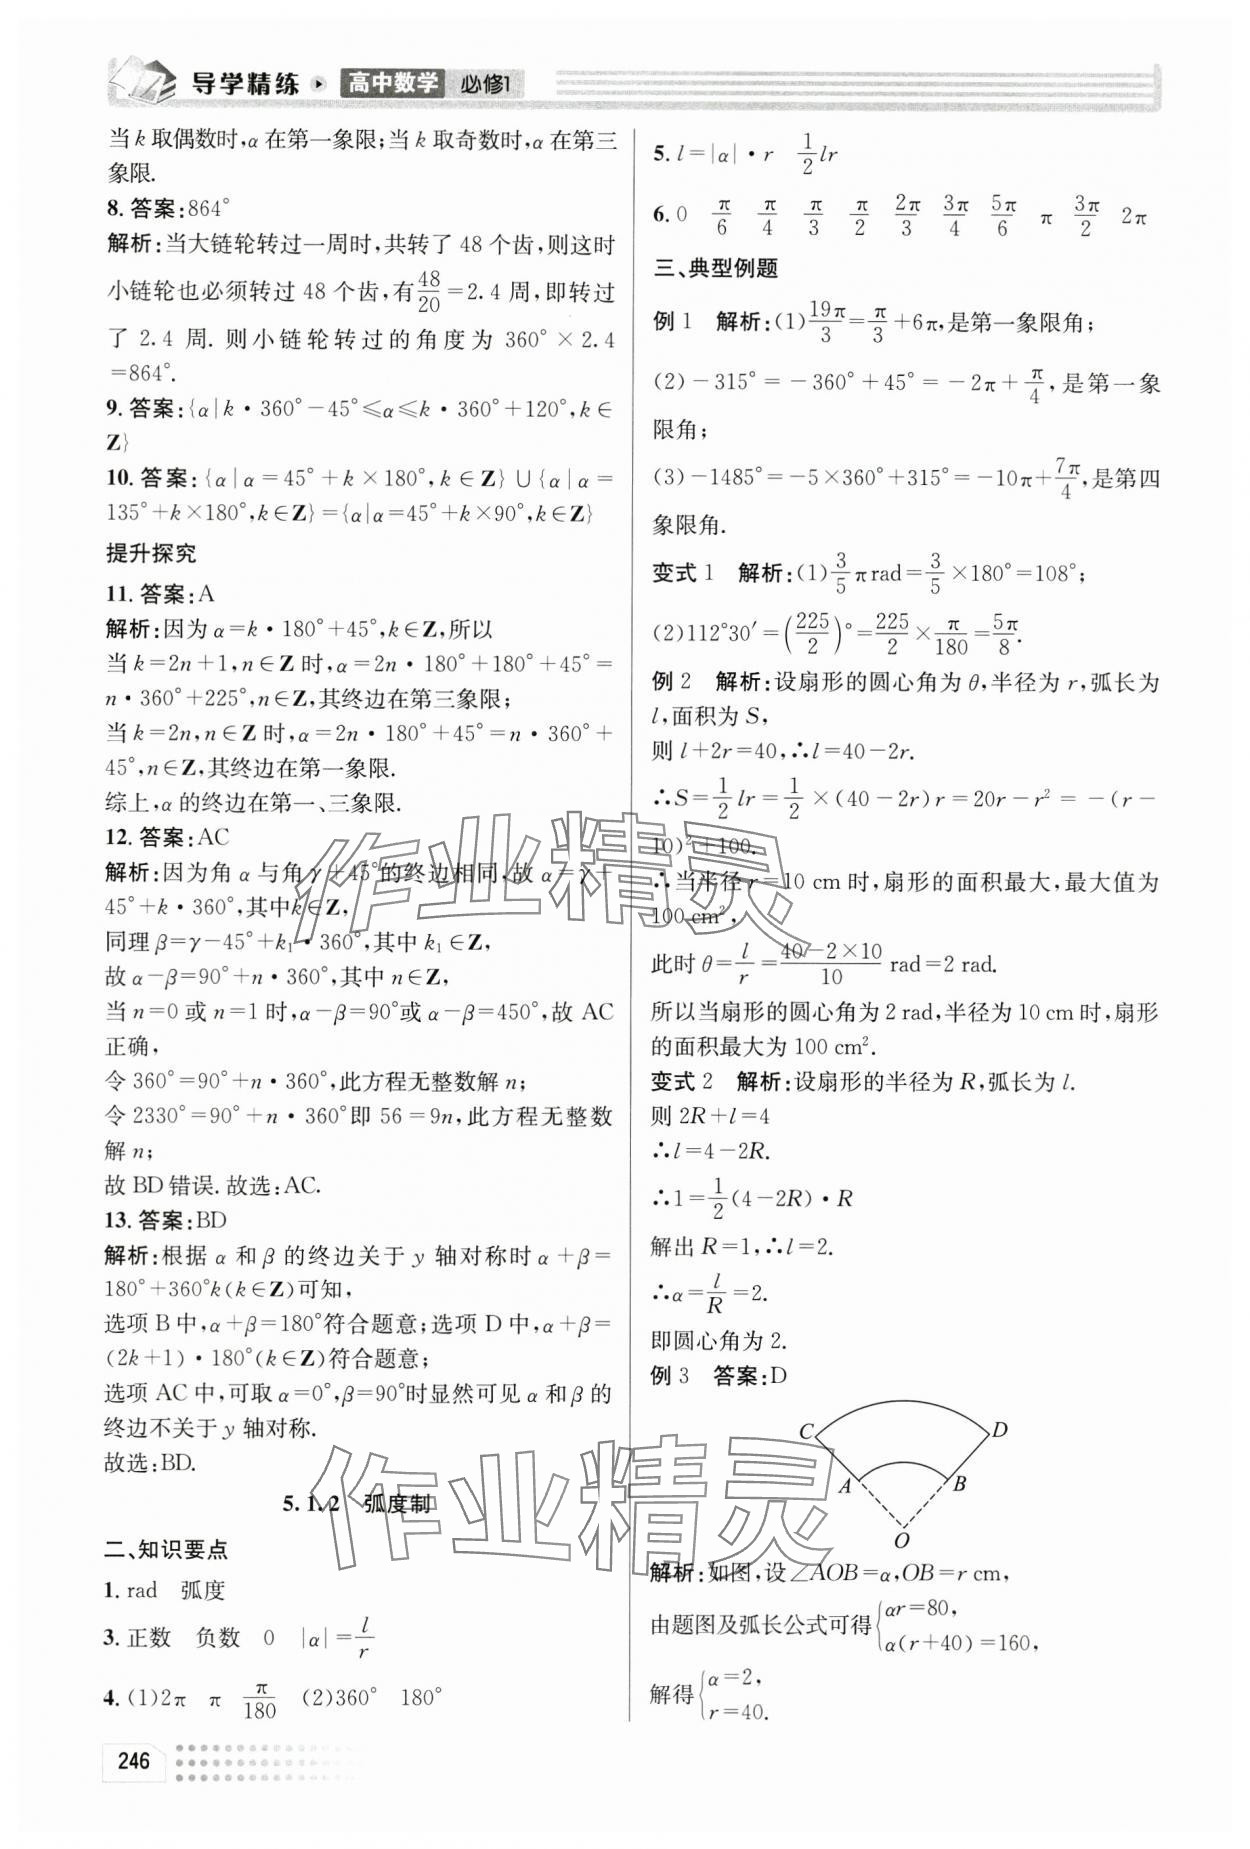 导学精练 高中数学 必修1
当k取偶数时,α在第一象限;当k取奇数时,α在第三
象限.
8.答案:864°
解析:当大链轮转过一周时,共转了48个齿,则这时
小链轮也必须转过48个齿,有48/20=2.4周,即转过
了2.4周.则小链轮转过的角度为360°×2.4
=864°.
9.答案:{α|k·360°-45°≤α≤k·360°+120°,k∈
Z}
10.答案:{α|α=45°+k×180°,k∈Z}∪{α|α=
135°+k×180°,k∈Z}={α|α=45°+k×90°,k∈Z}
提升探究
11.答案:A
解析:因为α=k·180°+45°,k∈Z,所以
当k=2n+1,n∈Z时,α=2n·180°+180°+45°=
n·360°+225°,n∈Z,其终边在第三象限;
当k=2n,n∈Z时,α=2n·180°+45°=n·360°+
45°,n∈Z,其终边在第一象限.
综上,α的终边在第一、三象限.
12.答案:AC
解析:因为角α与角γ+45°的终边相同,故α=γ+
45°+k·360°,其中k∈Z,
同理β=γ-45°+k₁·360°,其中k₁∈Z,
故α-β=90°+n·360°,其中n∈Z,
当n=0或n=1时,α-β=90°或α-β=450°,故AC
正确,
令360°=90°+n·360°,此方程无整数解n;
令2330°=90°+n·360°即56=9n,此方程无整数
解n;
故BD错误.故选:AC.
13.答案:BD
解析:根据α和β的终边关于y轴对称时α+β=
180°+360°k(k∈Z)可知,
选项B中,α+β=180°符合题意;选项D中,α+β=
(2k+1)·180°(k∈Z)符合题意;
选项AC中,可取α=0°,β=90°时显然可见α和β的
终边不关于y轴对称.
故选:BD.
5.1.2 弧度制
二、知识要点
1.rad 弧度
3.正数 负数 0 |α|=l/r
4.(1)2π π π/180 (2)360° 180°
5.l=|α|·r 1/2 lr
6.0 π/6 π/4 π/3 π/2 2π/3 3π/4 5π/6 π 3π/2 2π
三、典型例题
例1 解析:(1)19π/3=π/3+6π,是第一象限角;
(2)-315°=-360°+45°=-2π+π/4,是第一象
限角;
(3)-1485°=-5×360°+315°=-10π+7π/4,是第四
象限角.
变式1 解析:(1)3/5 π rad=3/5×180°=108°;
(2)112°30′=(225/2)°=225/2×π/180=5π/8.
例2 解析:设扇形的圆心角为θ,半径为r,弧长为
l,面积为S,
则l+2r=40,∴l=40-2r.
∴S=1/2 lr=1/2×(40-2r)r=20r-r²=-(r-
10)²+100.
∴当半径r=10 cm时,扇形的面积最大,最大值为
100 cm²,
此时θ=l/r=(40-2×10)/10 rad=2 rad.
所以当扇形的圆心角为2 rad,半径为10 cm时,扇形
的面积最大为100 cm².
变式2 解析:设扇形的半径为R,弧长为l.
则2R+l=4
∴l=4-2R.
∴1=1/2(4-2R)·R
解出R=1,∴l=2.
∴α=l/R=2.
即圆心角为2.
例3 答案:D
C D
A B
O
解析:如图,设∠AOB=α,OB=r cm,
由题图及弧长公式可得{αr=80,
α(r+40)=160,
解得{α=2,
r=40.
246
作业精灵
作业精灵